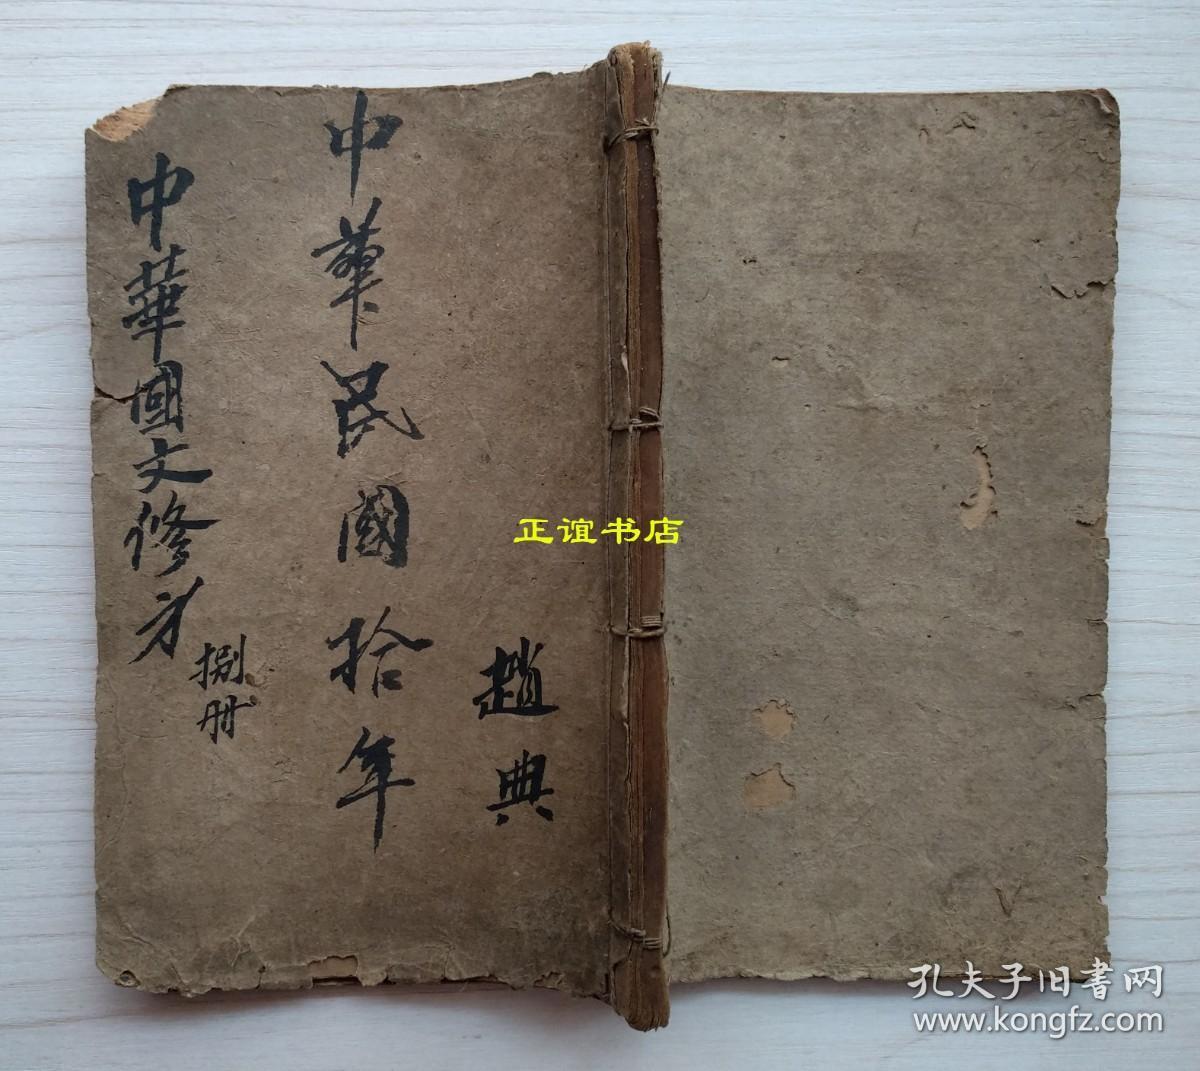 趙典
中華民國拾年
中華國文修身
捌冊
正谊书店
孔夫子旧书网
www.kongfz.com